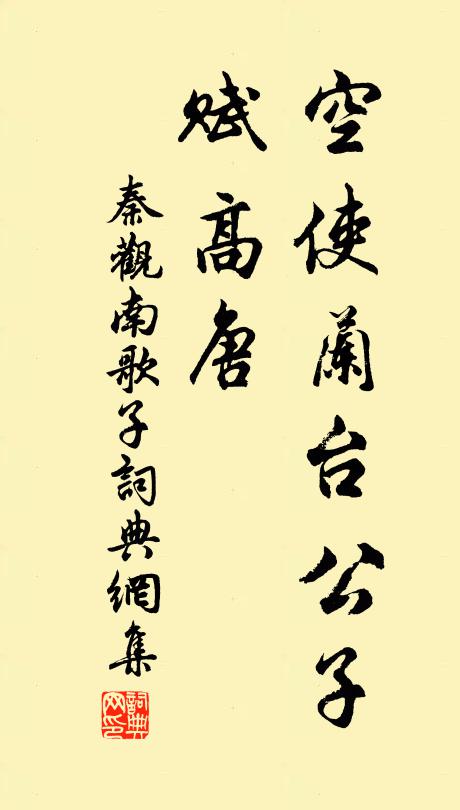 空使蘭台公子
賦高唐
秦觀南歌子詞典網集
詞典网印